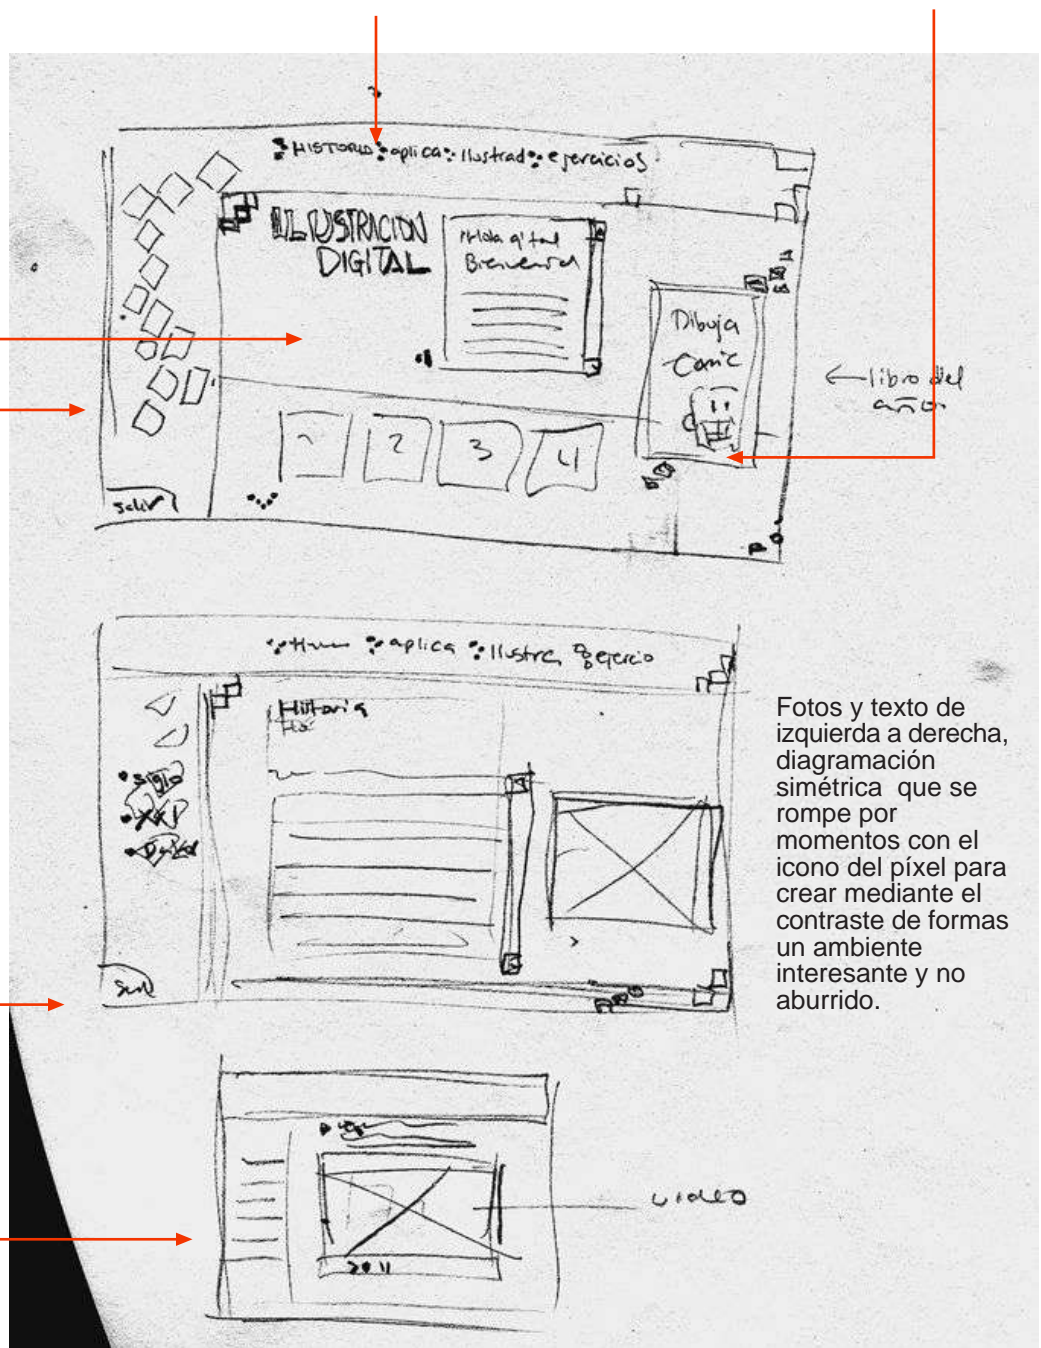 HISTORIA aplica Ilustrad ejercicios
ILUSTRACION
DIGITAL
Hola q' tal
Bienvenid
Dibuja
Comic
libro del
año
1 2 3 4
Salir
aplica Ilustra Ejercio
Historia
Ho
Siglo
XXI
Digital
Salir
Fotos y texto de
izquierda a derecha,
diagramación
simétrica que se
rompe por
momentos con el
icono del píxel para
crear mediante el
contraste de formas
un ambiente
interesante y no
aburrido.
video